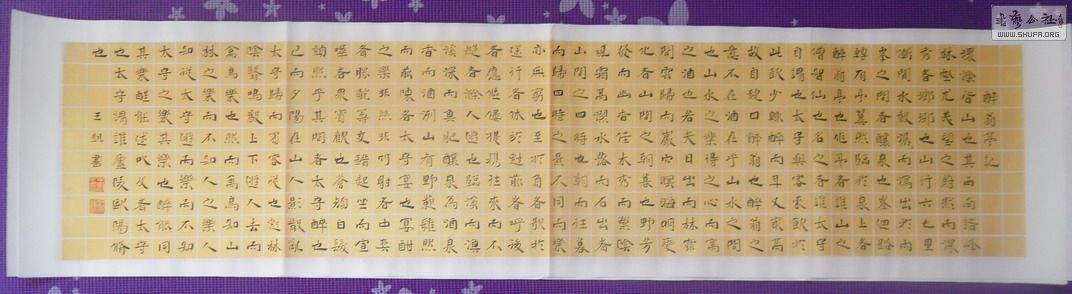 醉翁亭记
環滁皆山也其西南諸峰
林壑尤美望之蔚然而深
秀者瑯琊也山行六七里
漸聞水聲潺潺瀉出於兩
峯之間者釀泉也峯迴路
轉有亭翼然臨於泉上者
醉翁亭也作亭者誰山之
僧智仙也名之者誰太守
自謂也太守與客來飲於
此飲少輒醉而年又最高
故自號曰醉翁也醉翁之
意不在酒在乎山水之間
也山水之樂得之心而寓
之酒也若夫日出而林霏
開雲歸而巖穴暝晦明變
化者山間之朝暮也野芳
發而幽香佳木秀而繁陰
風霜高潔水落而石出者
山間之四時也朝而往暮
而歸四時之景不同而樂
亦無窮也至於負者歌於
途行者休於樹前者呼後
者應傴僂提攜往來而不
絕者滁人遊也臨溪而漁
溪深而魚肥釀泉為酒泉
香而酒洌山肴野蔌雜然
而前陳者太守宴也宴酣
之樂非絲非竹射者中弈
者勝觥籌交錯起坐而喧
嘩者眾賓歡也蒼顏白髮
頹然乎其間者太守醉也
已而夕陽在山人影散亂
太守歸而賓客從也樹林
陰翳鳴聲上下遊人去而
禽鳥樂也然而禽鳥知山
林之樂而不知人之樂人
知從太守遊而樂而不知
太守之樂其樂也醉能同
其樂醒能述以文者太守
也太守謂誰廬陵歐陽脩
也 王 書
WWW.SHUFA.ORG